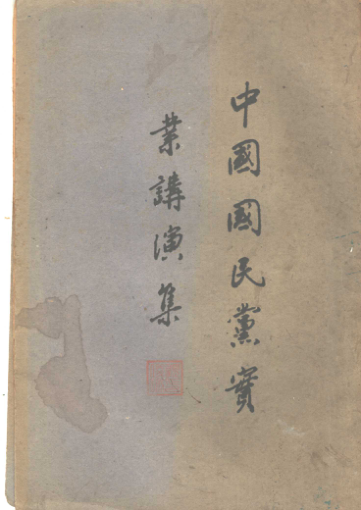 中國國民黨實
業講演集